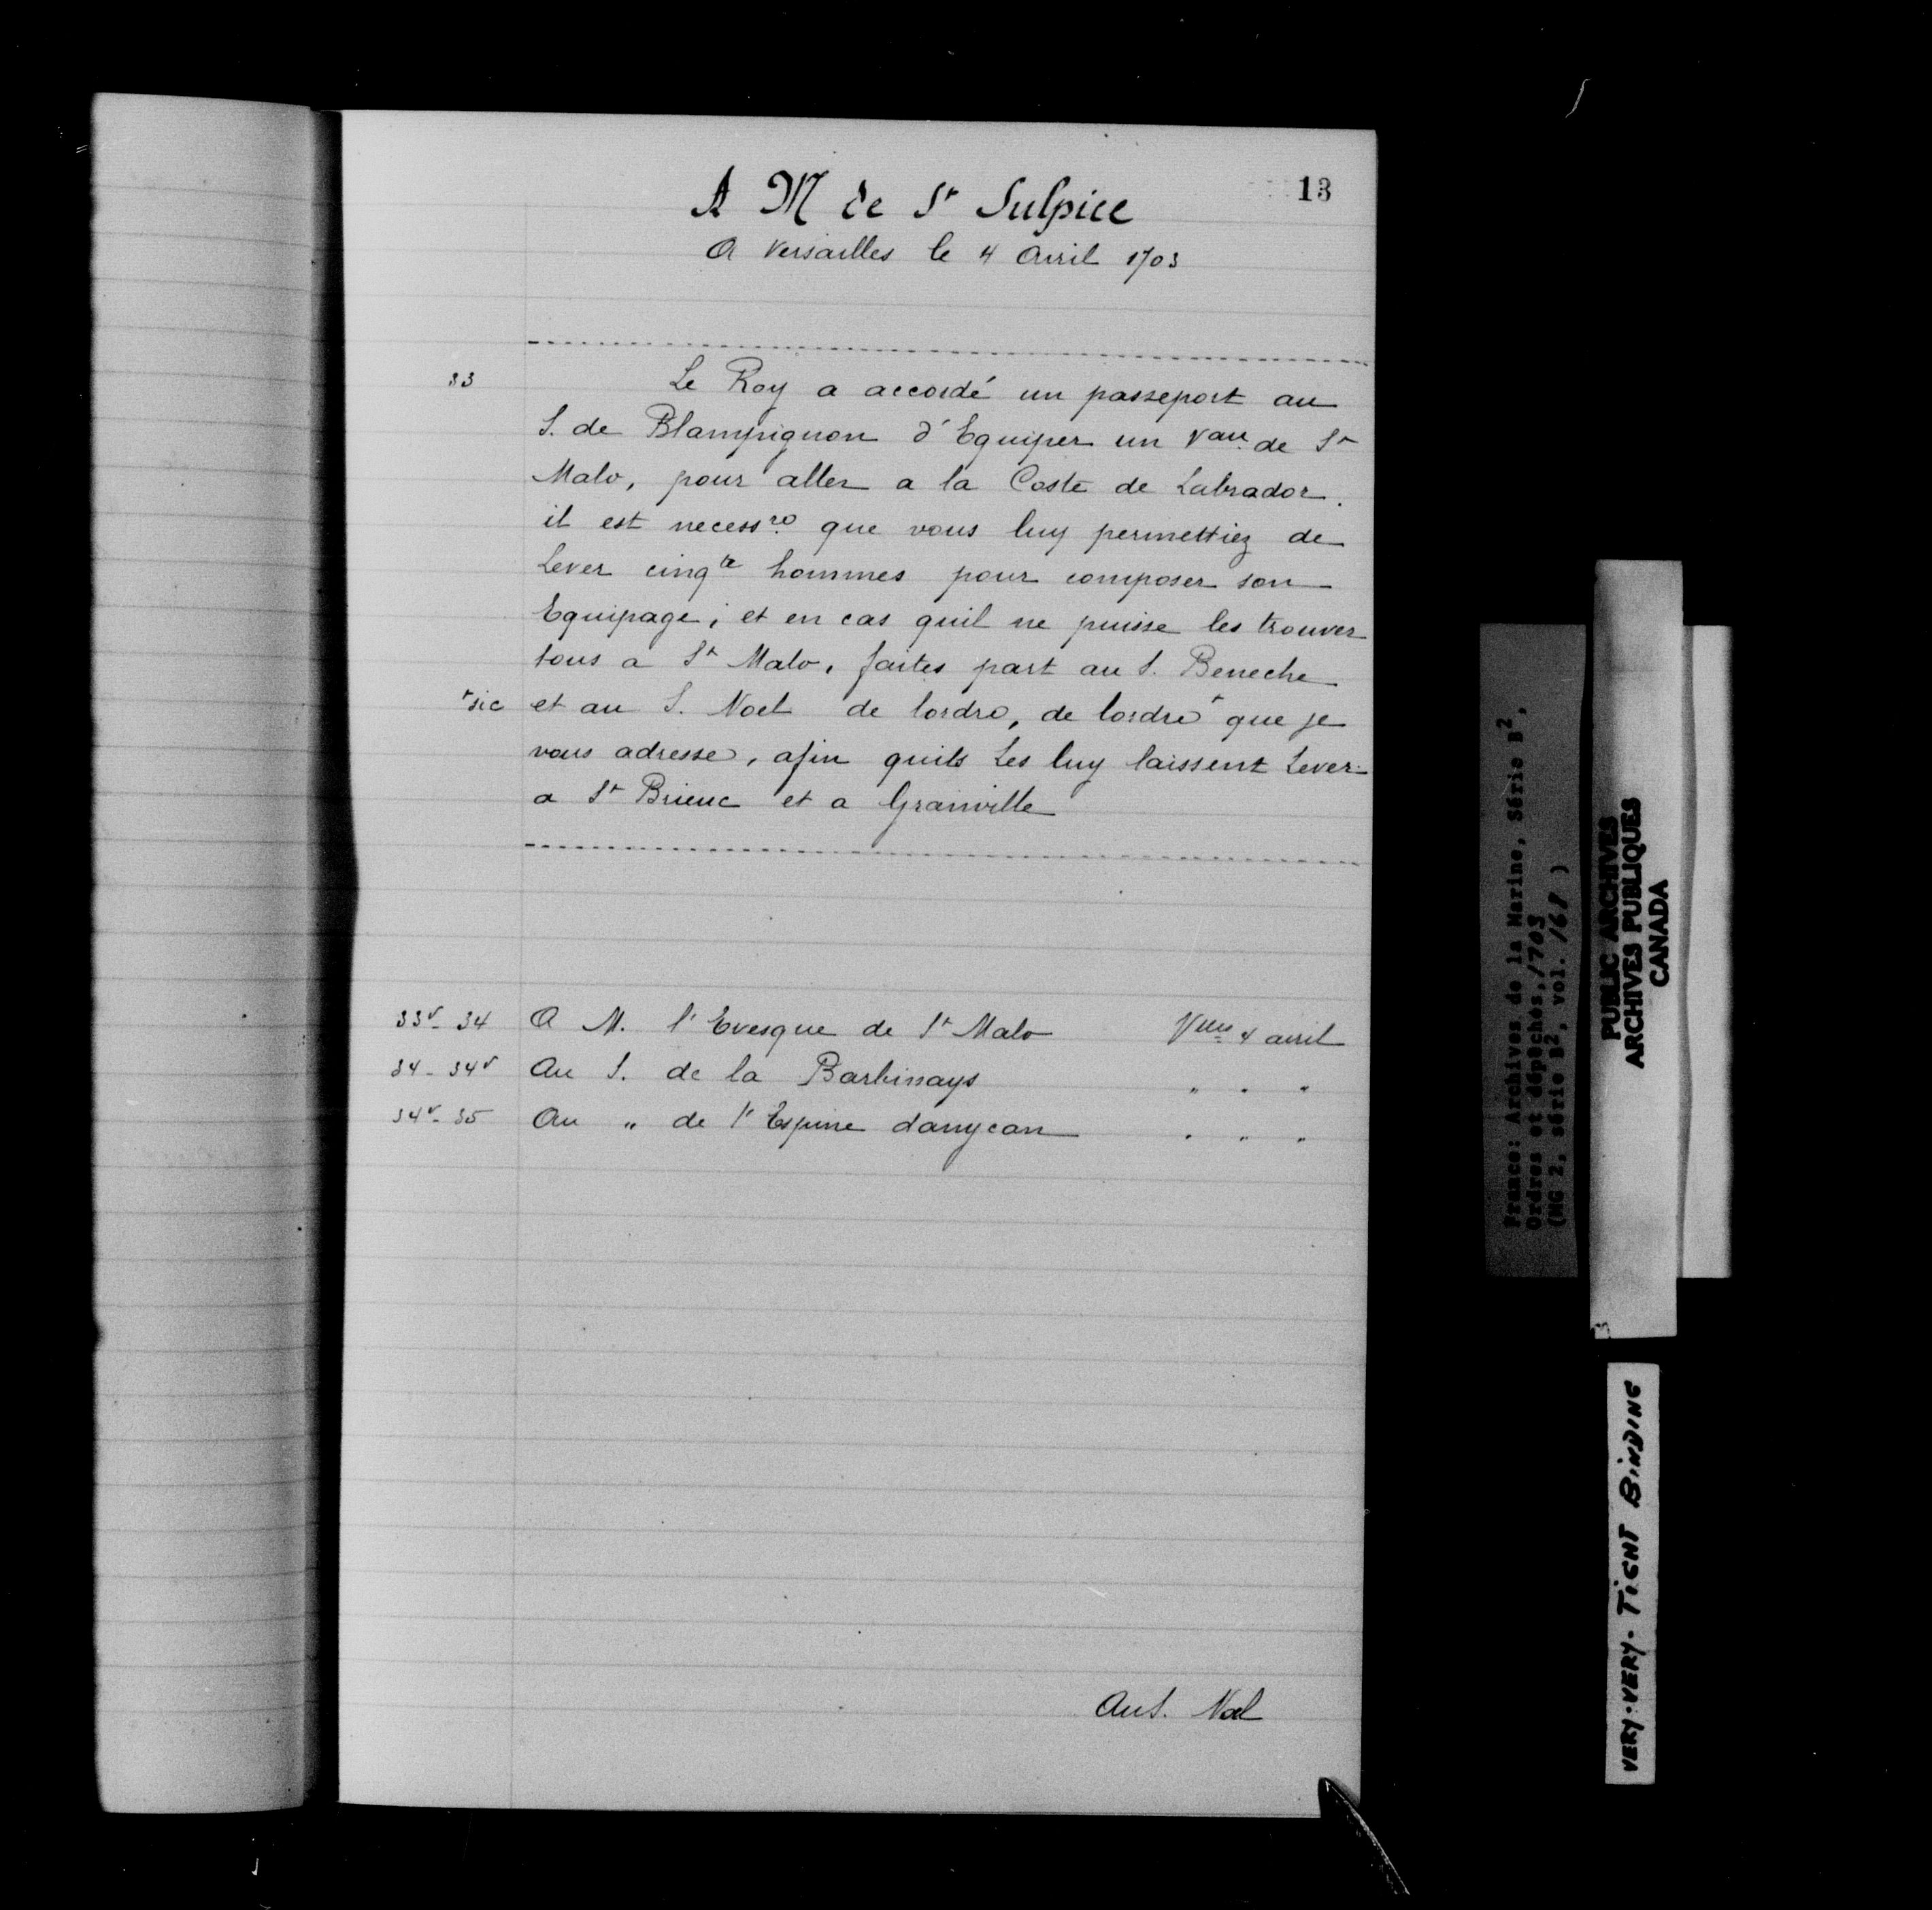 13
A M de St Sulpice
A Versailles le 4 Avril 1703
33 Le Roy a accordé un passeport au
S. de Blampignon d'Equiper un Vau. de St
Malo, pour aller a la Coste de Labrador.
il est necessre que vous luy permettiez de
Lever cinqte hommes pour composer son
Equipage, et en cas quil ne puisse les trouver
tous a St Malo, faites part au S. Beneche
+sic et au S. Noel de lordre, de lordre+ que je
vous adresse, afin quils Les luy laissent Lever
a St Brieuc et a Granville
33v-34 A M. l'Evesque de St Malo Vlles 4 avril
34-34v Au S. de la Barbinays " " "
34v-35 Au " de l'Espine danycan " " "
Au S. Noel
France: Archives de la Marine, Série B2,
Ordres et dépêches, 1703
(MG 2, série B2, vol. 168)
PUBLIC ARCHIVES
ARCHIVES PUBLIQUES
CANADA
VERY-VERY-TIGHT BINDING